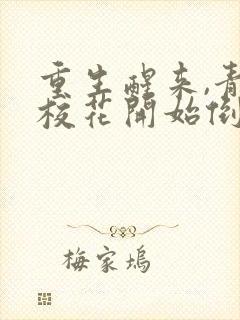 重生醒来,青
校花開始倒
梅家塢